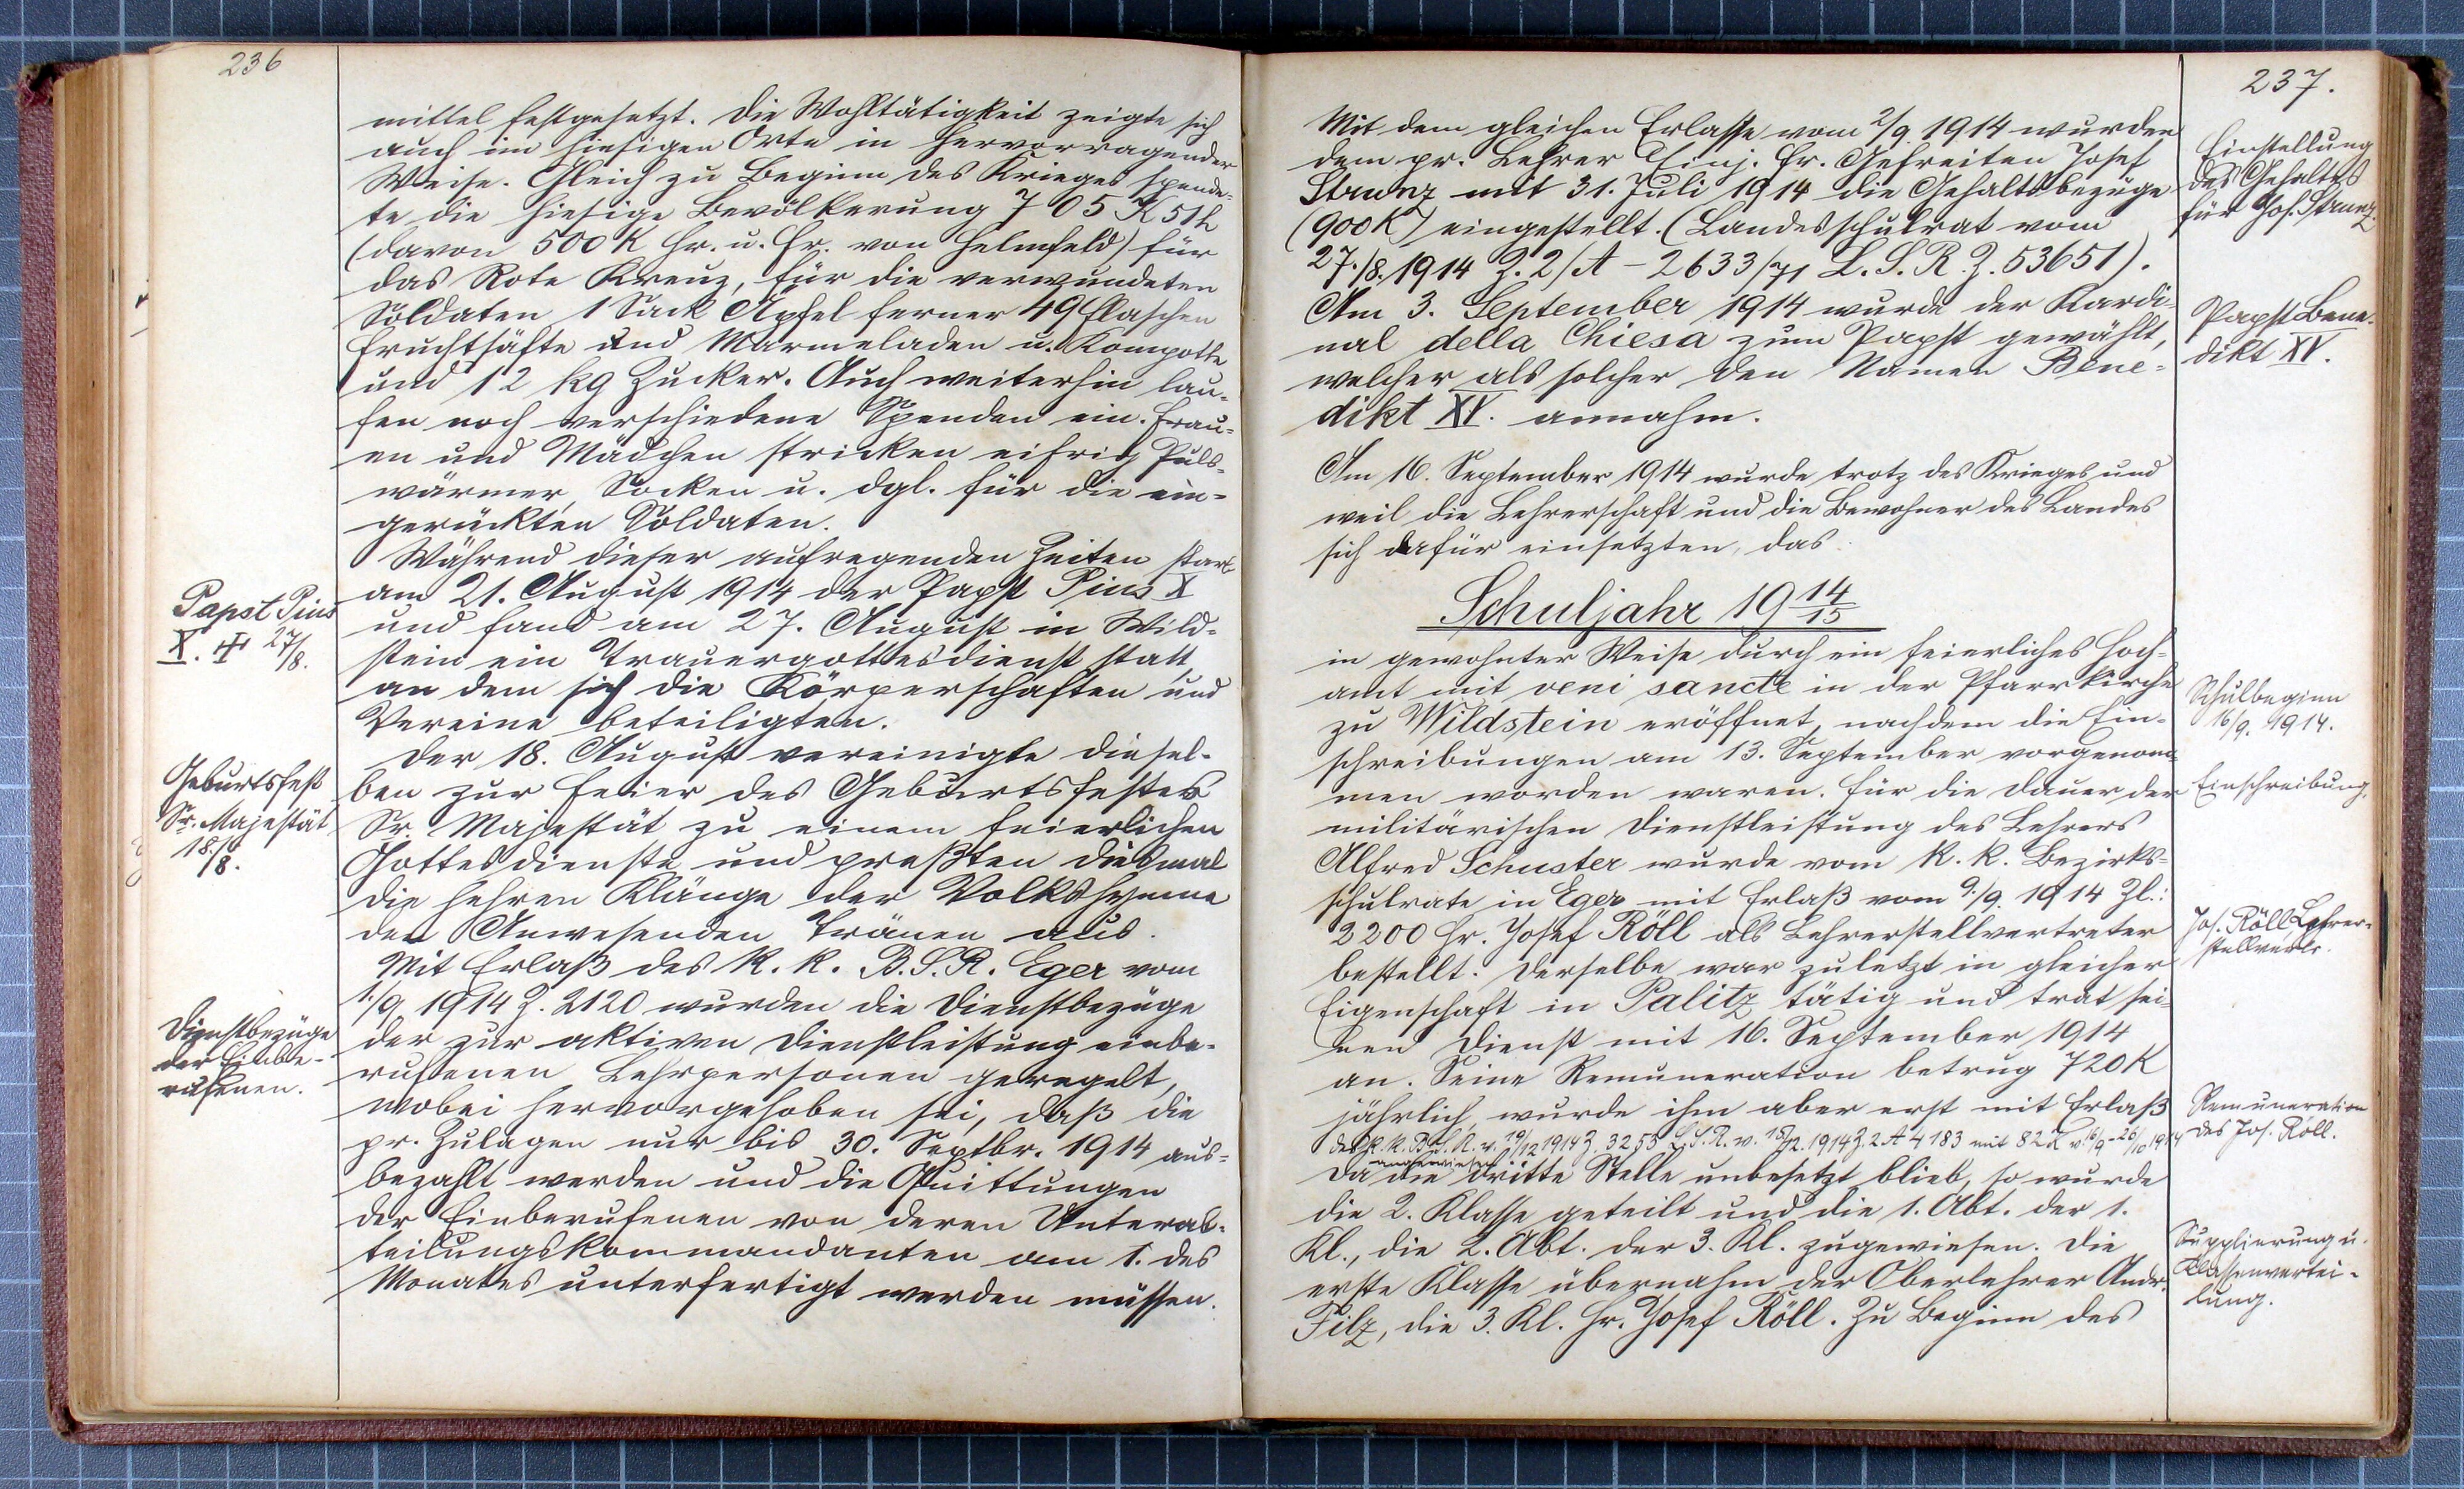 236
mittel festgesetzt. Die Wohltätigkeit zeigte sich
auch im hiesigen Orte in hervorragender
Weise. Gleich zu Beginn des Krieges spende-
te die hiesige Bevölkerung 705 K 51 h
(davon 500 K Hr. u. Fr. von Helmfeld) für
das Rote Kreuz, für die verwundeten
Soldaten 1 Sack Äpfel ferner 49 Flaschen
Fruchtsäfte und Marmeladen u. Kompotte
und 12 kg Zucker. Auch weiterhin lau-
fen noch verschiedene Spenden ein. Frau-
en und Mädchen stricken eifrig Puls-
wärmer, Socken u. dgl. für die ein-
gerückten Soldaten.
Während dieser aufregenden Zeiten starb
am 21. August 1914 der Papst Pius X
und fand am 27. August in Wild-
stein ein Trauergottesdienst statt,
an dem sich die Körperschaften und
Vereine beteiligten.
Papst Pius
X. ✝ 27/8.
Der 18. August vereinigte diesel-
ben zur Feier des Geburtsfestes
Sr. Majestät zu einem feierlichen
Gottesdienste und preßten diesmal
die hehren Klänge der Volkshymne
den Anwesenden Tränen aus.
Geburtsfest
Sr. Majestät
18./8.
Mit Erlaß des k. k. B. S. R. Eger vom
1./9. 1914 Z. 2120 wurden die Dienstbezüge
der zur aktiven Dienstleistung einbe-
rufenen Lehrpersonen geregelt,
wobei hervorgehoben sei, daß die
pr. Zulagen nur bis 30. Septbr. 1914 aus-
bezahlt werden und die Quittungen
der Einberufenen von deren Unterab-
teilungskommandanten am 1. des
Monates unterfertigt werden müssen.
Dienstbezüge
der Einbe-
rufenen.
237.
Mit dem gleichen Erlasse vom 2/9 1914 wurden
dem pr. Lehrer Einj. Fr. Gefreiten Josef
Strunz mit 31. Juli 1914 die Gehaltsbezüge
(900 K) eingestellt. (Landesschulrat vom
27./8. 1914 Z. 2/A - 2633/71 L. S. R. Z. 53651).
Einstellung
des Gehaltes
für Jos. Strunz
Am 3. September 1914 wurde der Kardi-
nal della Chiesa zum Papst gewählt,
welcher als solcher den Namen Bene-
dikt XV. annahm.
Papst Bene-
dikt XV.
Am 16. September 1914 wurde trotz des Krieges und
weil die Lehrerschaft und die Bewohner des Landes
sich dafür einsetzten, das
Schuljahr 1914/15
in gewohnter Weise durch ein feierliches Hoch-
amt mit veni sancte in der Pfarrkirche
zu Wildstein eröffnet, nachdem die Ein-
schreibungen am 13. September vorgenom-
men worden waren. Für die Dauer der
militärischen Dienstleistung des Lehrers
Alfred Schuster wurde vom k. k. Bezirks-
schulrate in Eger mit Erlaß vom 9./9. 1914 Zl.:
2200 Hr. Josef Röll als Lehrerstellvertreter
bestellt. Derselbe war zuletzt in gleicher
Eigenschaft in Palitz tätig und trat sei-
nen Dienst mit 16. September 1914
an. Seine Remuneration betrug 720 K
jährlich, wurde ihm aber erst mit Erlaß
des k. k. B. S. R. v. 19/12 1914 Z. 3253 L. S. R. v. 15/12. 1914 Z. 2 A 4183 mit 82 K v. 16/9 - 26/10 1914
angewiesen
Schulbeginn
16/9. 1914.
Einschreibung.
Jos. Röll Lehrer-
stellvertr.
Remuneration
des Jos. Röll.
Da die dritte Stelle unbesetzt blieb, so wurde
die 2. Klasse geteilt und die 1. Abt. der 1.
Kl., die 2. Abt. der 3. Kl. zugewiesen. Die
erste Klasse übernahm der Oberlehrer Andr.
Filz, die 3. Kl. Hr. Josef Röll. Zu Beginn des
Supplierung u.
Klassenvertei-
lung.